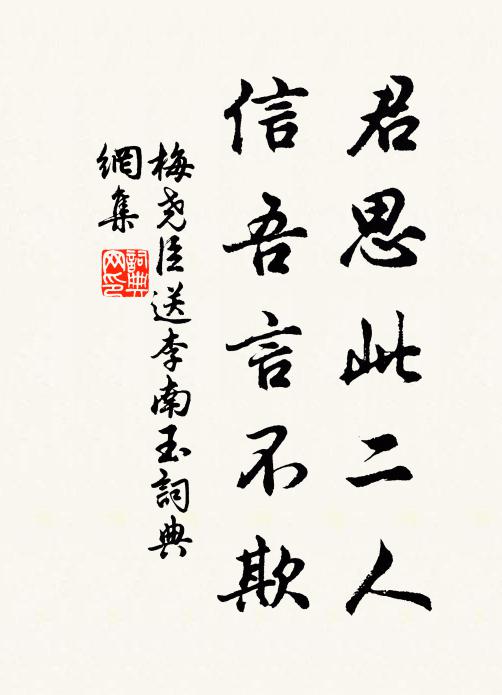 君思此二人
信吾言不欺
梅尧臣送李南玉詞典
網集
詞典
网印